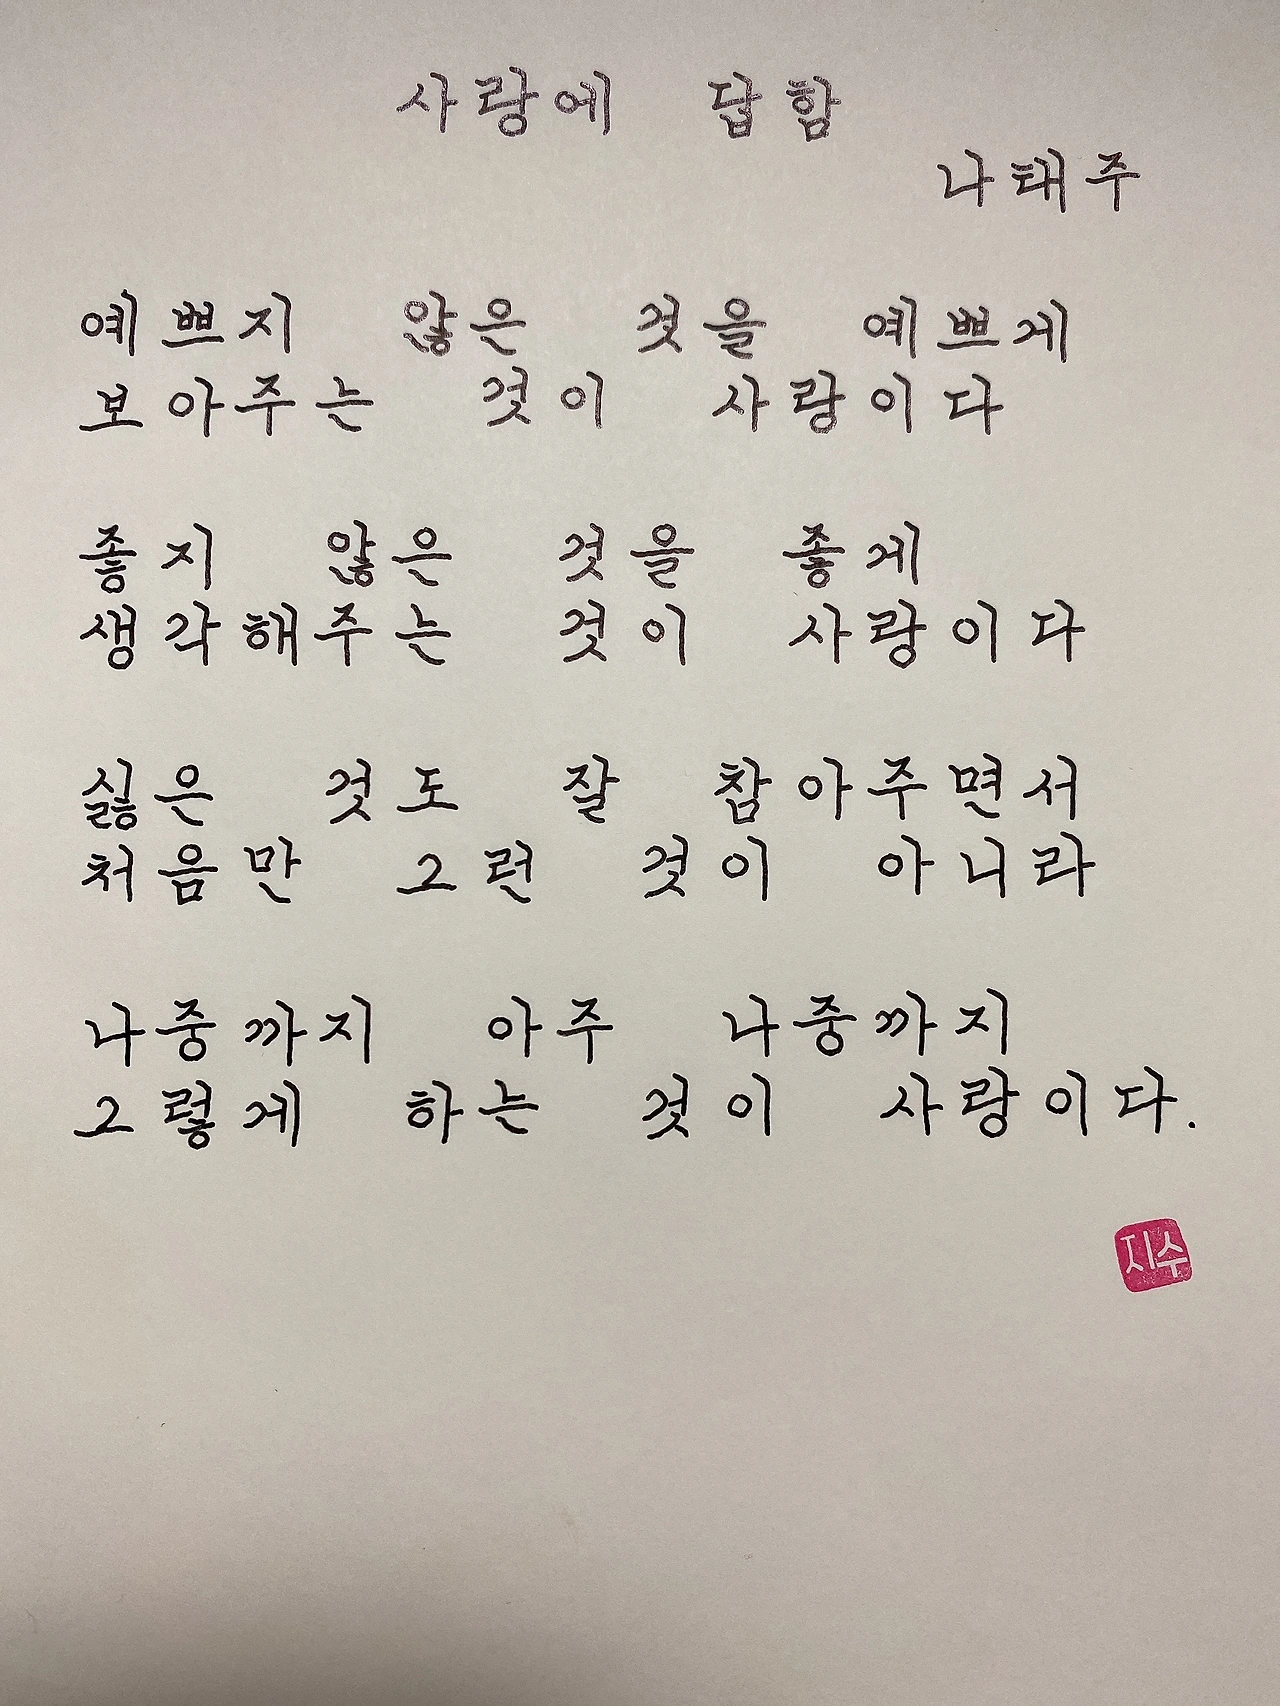 사랑에 답함
나태주
예쁘지 않은 것을 예쁘게
보아주는 것이 사랑이다
좋지 않은 것을 좋게
생각해주는 것이 사랑이다
싫은 것도 잘 참아주면서
처음만 그런 것이 아니라
나중까지 아주 나중까지
그렇게 하는 것이 사랑이다.
지수